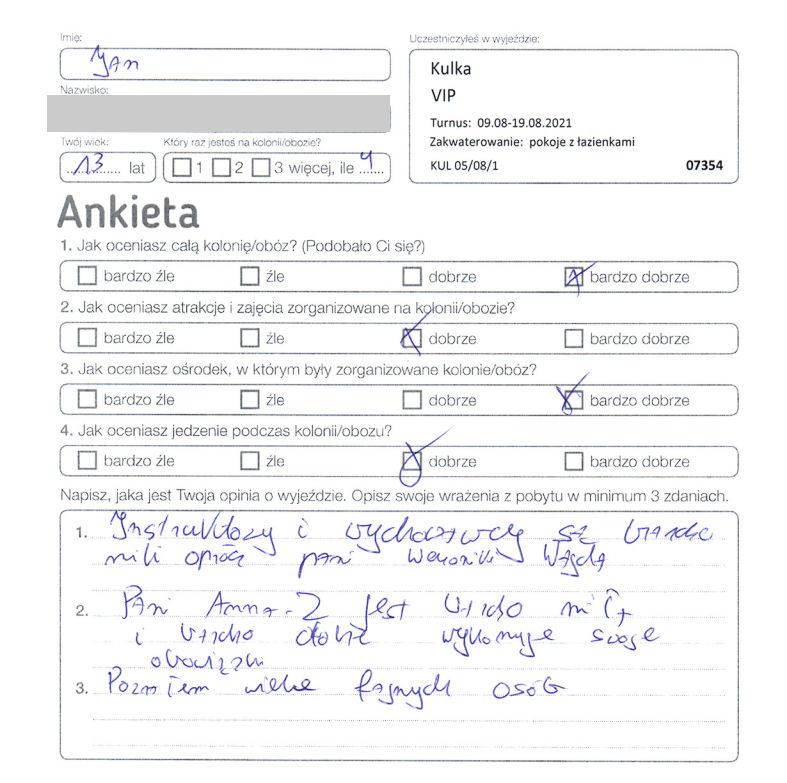 Imię:
Jan
Uczestniczyłeś w wyjeździe:
Kulka
VIP
Turnus: 09.08-19.08.2021
Zakwaterowanie: pokoje z łazienkami
KUL 05/08/1
07354
Nazwisko:
Twój wiek:
13 lat
Który raz jesteś na kolonii/obozie?
1 2 3 więcej, ile 4
Ankieta
1. Jak oceniasz całą kolonię/obóz? (Podobało Ci się?)
bardzo źle źle dobrze bardzo dobrze
2. Jak oceniasz atrakcje i zajęcia zorganizowane na kolonii/obozie?
bardzo źle źle dobrze bardzo dobrze
3. Jak oceniasz ośrodek, w którym były zorganizowane kolonie/obóz?
bardzo źle źle dobrze bardzo dobrze
4. Jak oceniasz jedzenie podczas kolonii/obozu?
bardzo źle źle dobrze bardzo dobrze
Napisz, jaka jest Twoja opinia o wyjeździe. Opisz swoje wrażenia z pobytu w minimum 3 zdaniach.
1. Instruktozy i wychowawcy są bardzo
mili oprócz pani Weroniki
2. Pani Anna-Z jest bardzo miła
i bardzo dobże wykonuje swoje
obowiązki
3. Poznałem wiele fajnych osób